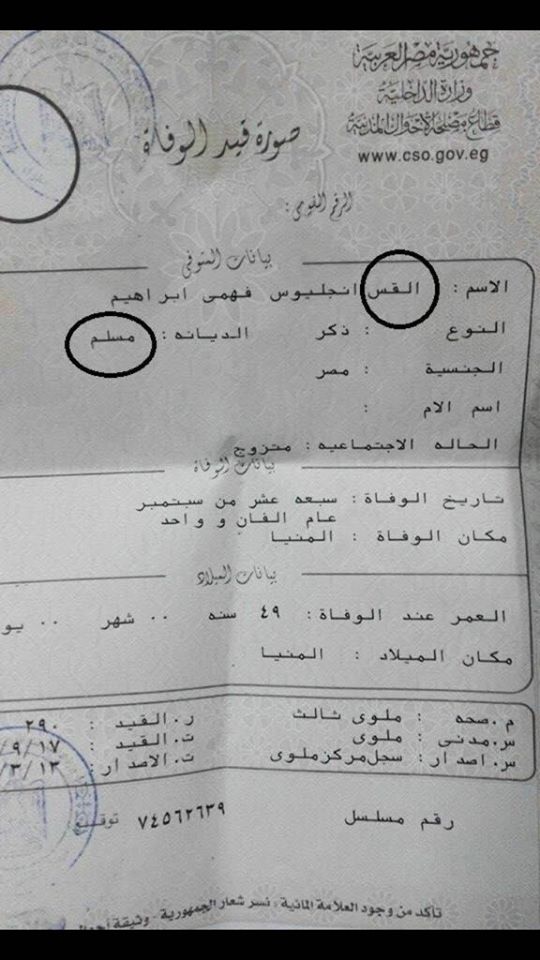 جمهورية مصر العربية
وزارة الداخلية
قطاع مصلحة الأحوال المدنية
www.cso.gov.eg
صورة قيد الوفاة
الرقم القومى :
بيانات المتوفى
الاسم : القس انجليوس فهمى ابراهيم
النوع : ذكر الديانه : مسلم
الجنسية : مصر
اسم الام :
الحاله الاجتماعيه : متزوج
بيانات الوفاة
تاريخ الوفاة : سبعه عشر من سبتمبر
عام الفان و واحد
مكان الوفاة : المنيا
بيانات الميلاد
العمر عند الوفاة : ٤٩ سنه ٠٠ شهر ٠٠ يو
مكان الميلاد : المنيا
م.صحه : ملوى ثالث ر.القيد : ٢٩٠
س.مدنى : ملوى ت.القيد : ٩/١٧/
س.اصدار : سجل مركز ملوى ت.الاصدار : ٣/١٣/
رقم مسلسل ٧٤٥٦٢٦٣٩ توقيع
تأكد من وجود العلامة المائية : نسر شعار الجمهورية - وثيقة أحوال